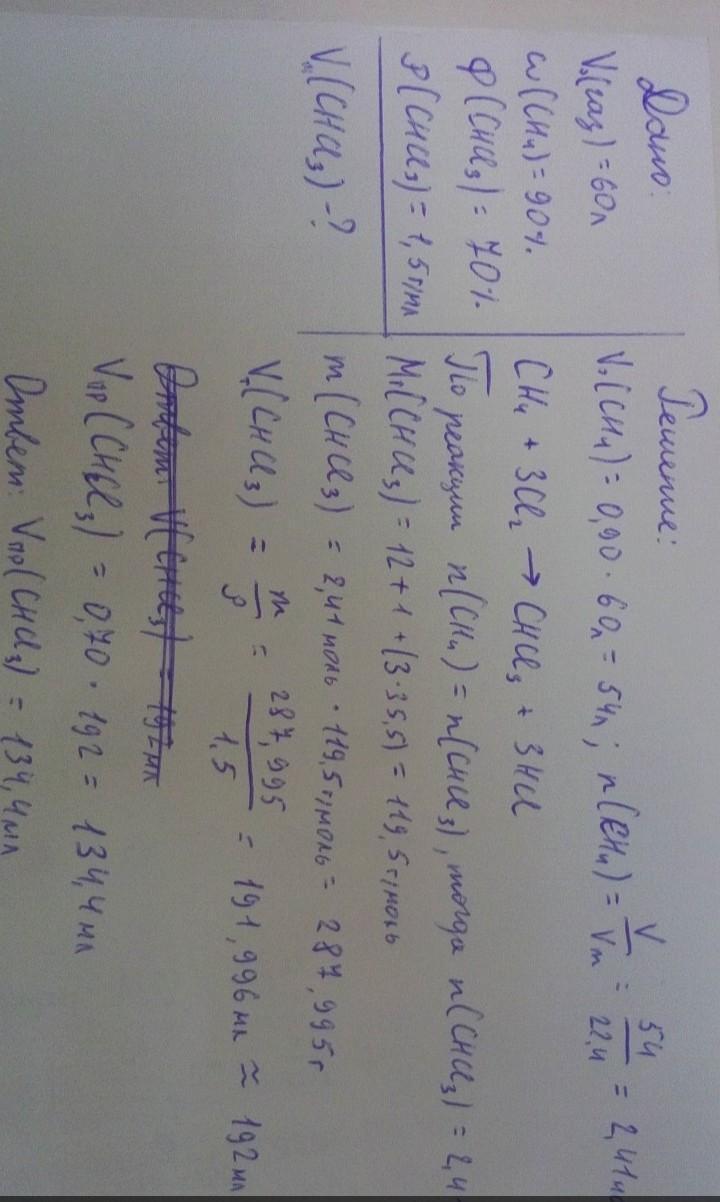 Дано:
V₁(газ) = 60л
ω(CH₄) = 90%
φ(CHCl₃) = 70%
ρ(CHCl₃) = 1,5г/мл
(CHCl₃) - ?
Решение:
V₁(CH₄) = 0,90 · 60л = 54л; n(CH₄) = V/Vm = 54/22,4 = 2,41
CH₄ + 3Cl₂ → CHCl₃ + 3HCl
По реакции n(CH₄) = n(CHCl₃), тогда n(CHCl₃) = 2,4
Mr(CHCl₃) = 12 + 1 + (3·35,5) = 119,5г/моль
m(CHCl₃) = 2,41моль · 119,5г/моль = 287,995г
Vт(CHCl₃) = m/ρ = 287,995/1,5 = 191,996мл ≈ 192мл
Ответ: V(CHCl₃) = 192мл
Vпр(CHCl₃) = 0,70 · 192 = 134,4мл
Ответ: Vпр(CHCl₃) = 134,4мл